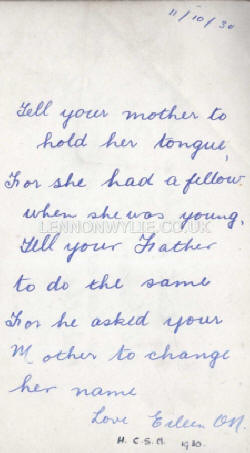 11/10/30
Tell your mother to
hold her tongue,
For she had a fellow
when she was young,
LENNONWYLIE.CO.UK
Tell your Father
to do the same
For he asked your
Mother to change
her name
Love Eileen ON.
H.C.S.M. 1930.